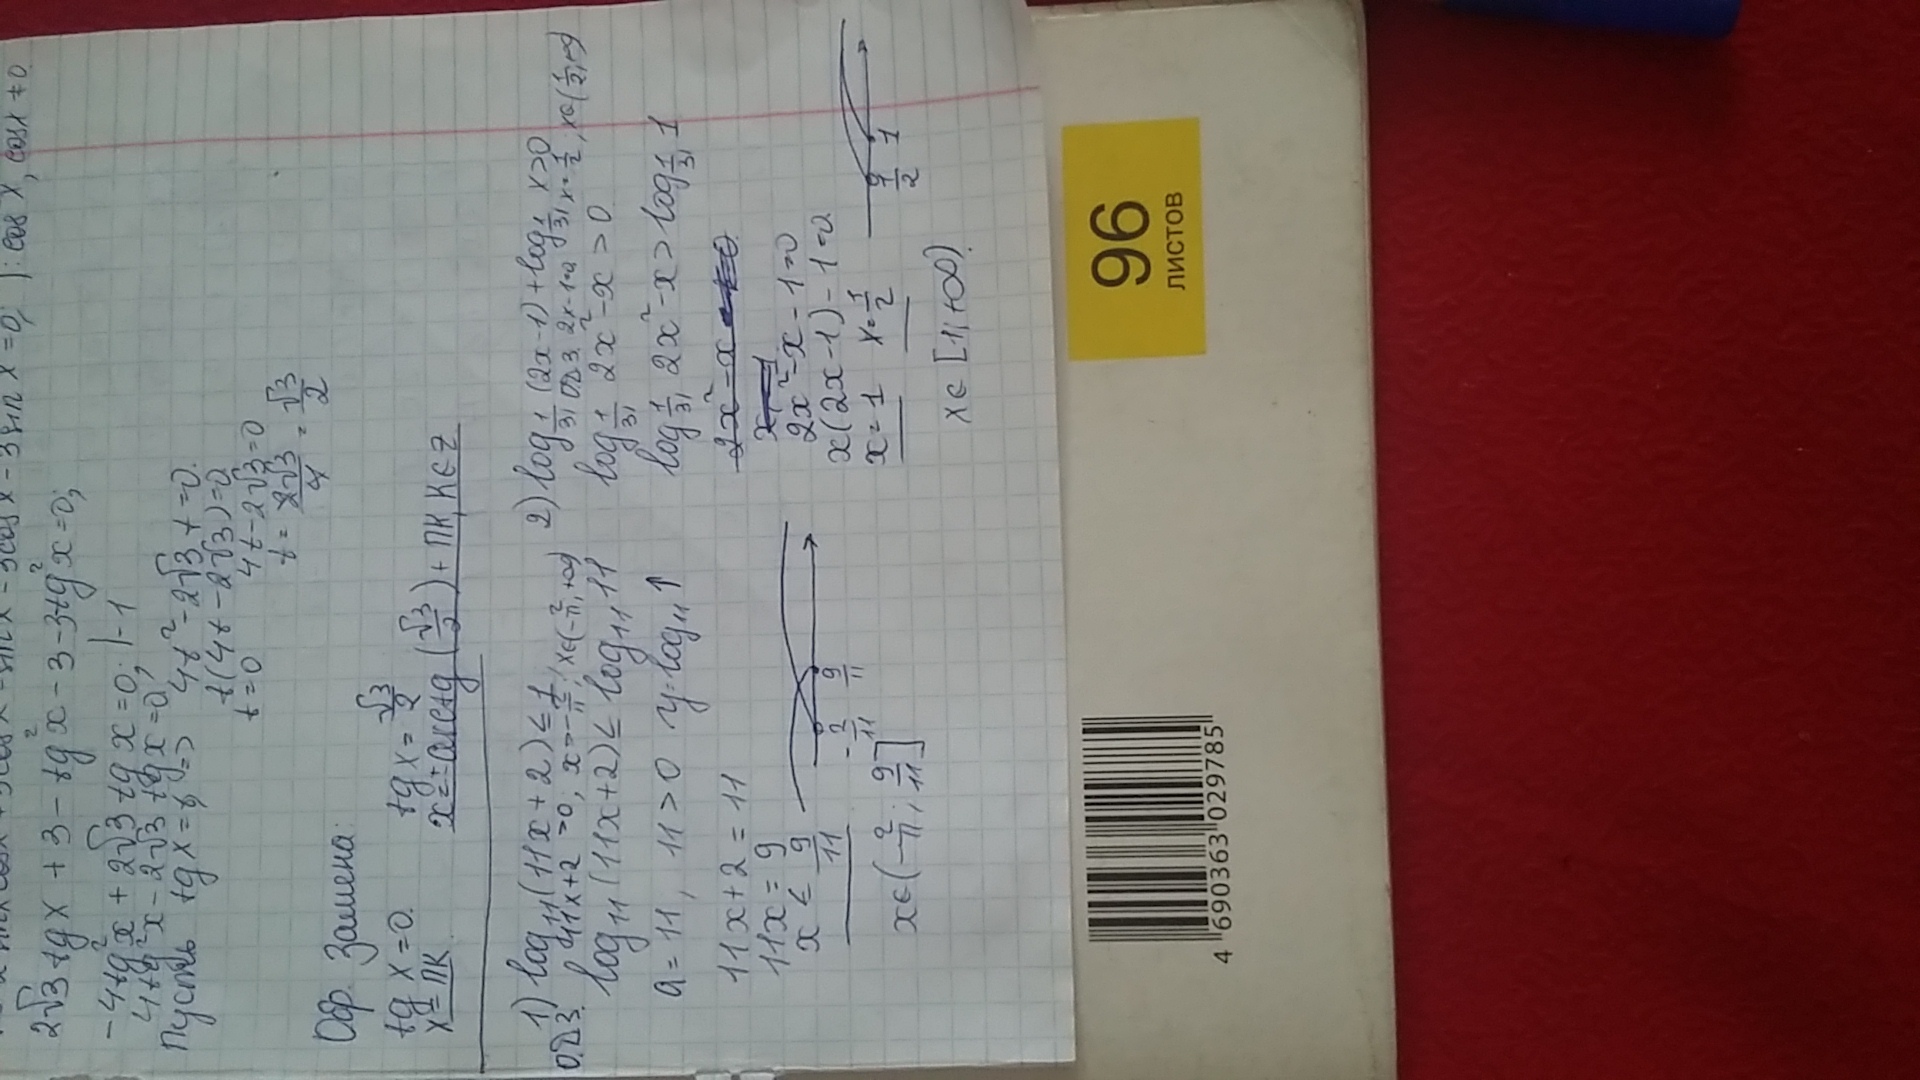 : cos x, cos x ≠ 0
2√3 tg x + 3 - tg²x - 3 - 3tg²x = 0;
-4tg²x + 2√3 tg x = 0; |·-1
4tg²x - 2√3 tg x = 0;
Пусть tg x = t, => 4t² - 2√3 t = 0.
t(4t - 2√3) = 0
t = 0 4t - 2√3 = 0
t = 2√3/4 = √3/2
Обр. Замена:
tg x = 0. tg x = √3/2
x = πK x = arctg (√3/2) + πK, K ∈ Z
1) log₁₁(11x+2) ≤ 1
О.Д.З. 11x+2 = 0; x = -2/11; x∈(-2/11; +∞)
log₁₁(11x+2) ≤ log₁₁ 11
a = 11, 11 > 0 y = log₁₁ ↑
11x + 2 = 11
11x = 9
x ≤ 9/11
-2/11 9/11
x∈(-2/11; 9/11]
2) log 1/31 (2x-1) + log 1/31 x > 0
ОДЗ. 2x-1=0 x = 1/2, x∈(1/2; +∞)
log 1/31 2x² - x > 0
log 1/31 2x² - x > log 1/31 1
2x² - x
2x² - x - 1 = 0
x(2x-1) - 1 = 0
x = 1 x = 1/2
1/2 1
x∈[1; +∞).
96
листов
4 690363 029785